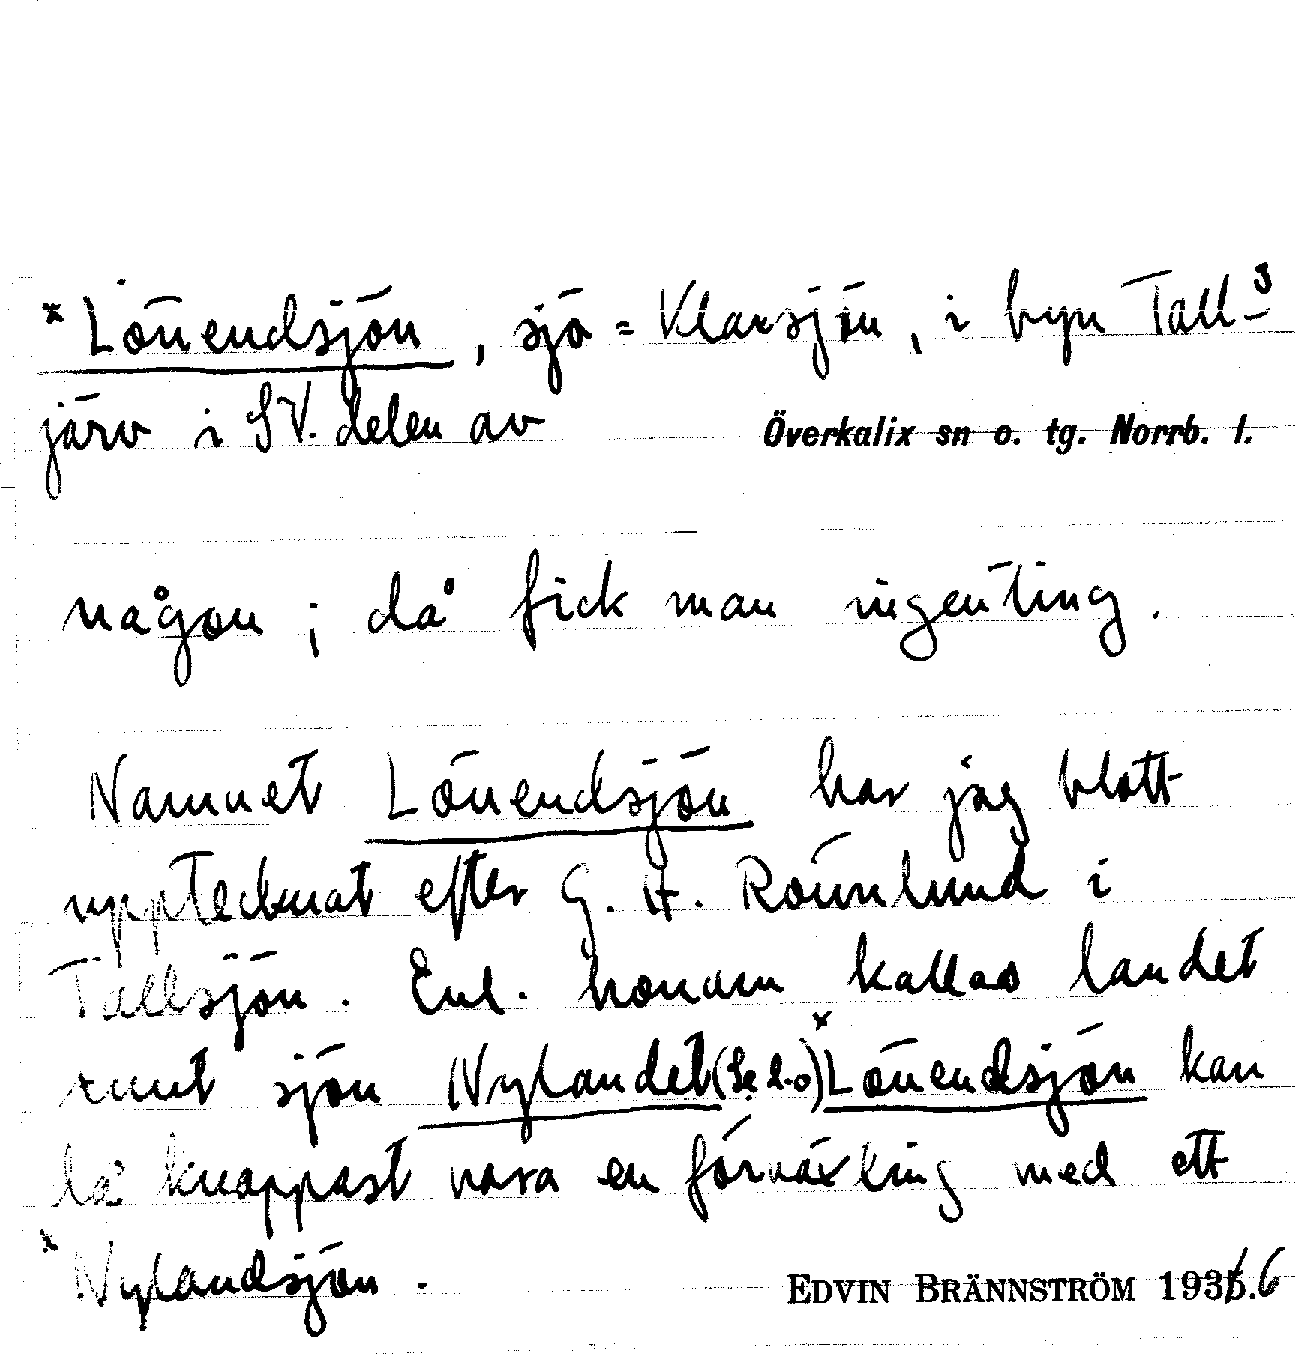 * Lönendsjön, sjö = Klarsjön, i byn Tall- 3
järv i SV. delen av Överkalix sn o. tg. Norrb. l.
någon; då fick man ingenting.
Namnet Lönendsjön har jag blott
upptecknat efter G. A. Rönnlund i
Tallsjön. Enl. honom kallas landet
runt sjön Nylandet (Se d.o) *Lönendsjön kan
då knappast vara en förväxling med ett
*Nylandsjön.
EDVIN BRÄNNSTRÖM 1935.6